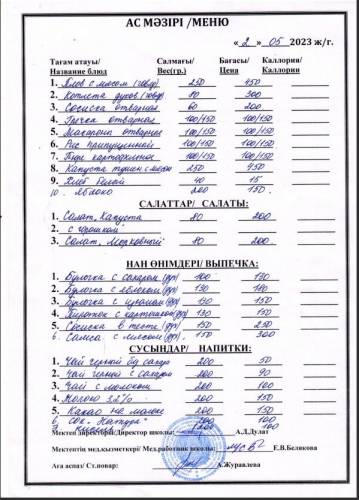 АС МӘЗІРІ /МЕНЮ
« 2 » 05 2023 ж/г.
Тағам атауы/ Салмағы/ Бағасы/ Каллория/
Название блюд Вес(гр.) Цена Каллории
1. Плов с мясом (говяд) 250 450
2. Котлета духов. (говяд) 80 300
3. Сосиска отварная 60 200
4. Гречка отварная 100/150 100/150
5. Макароны отварные 100/150 100/150
6. Рис припущенный 100/150 100/150
7. Пюре картофельное 100/150 100/150
8. Капуста тушен с мясом 250 450
9. Хлеб белый 40 15
10. Яблоко 200 150
САЛАТТАР/ САЛАТЫ:
1. Салат. Капуста 80 200
2. с горошком
3. Салат. Морковный 80 200
НАН ӨНІМДЕРІ/ ВЫПЕЧКА:
1. Булочка с сахаром 100 130
2. Булочка с яблоком 130 180
3. Булочка с 130 150
4. Пирожок с картошкой 130 150
5. Сосиска в тесте 150 250
6. Самса с мясом 150 300
СУСЫНДАР/ НАПИТКИ:
1. Чай черный без сахара 200 50
2. Чай черный с сахаром 200 90
3. Чай с молоком 200 100
4. Молоко 3.2% 200 150
5. Какао на молоке 200 150
6. Сок. 200
Мектеп директоры/Директор школы: А.Л.Дулат
Мектептің мед.кызметкері/ Мед.работник школы: Е.В.Белякова
Аға аспаз/ Ст.повар: А.Журавлева